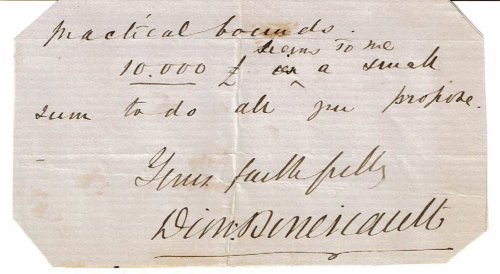 practical bounds.
seems to me
10.000 £ a small
sum to do all you propose.
Yours faithfully
Dion. Boucicault